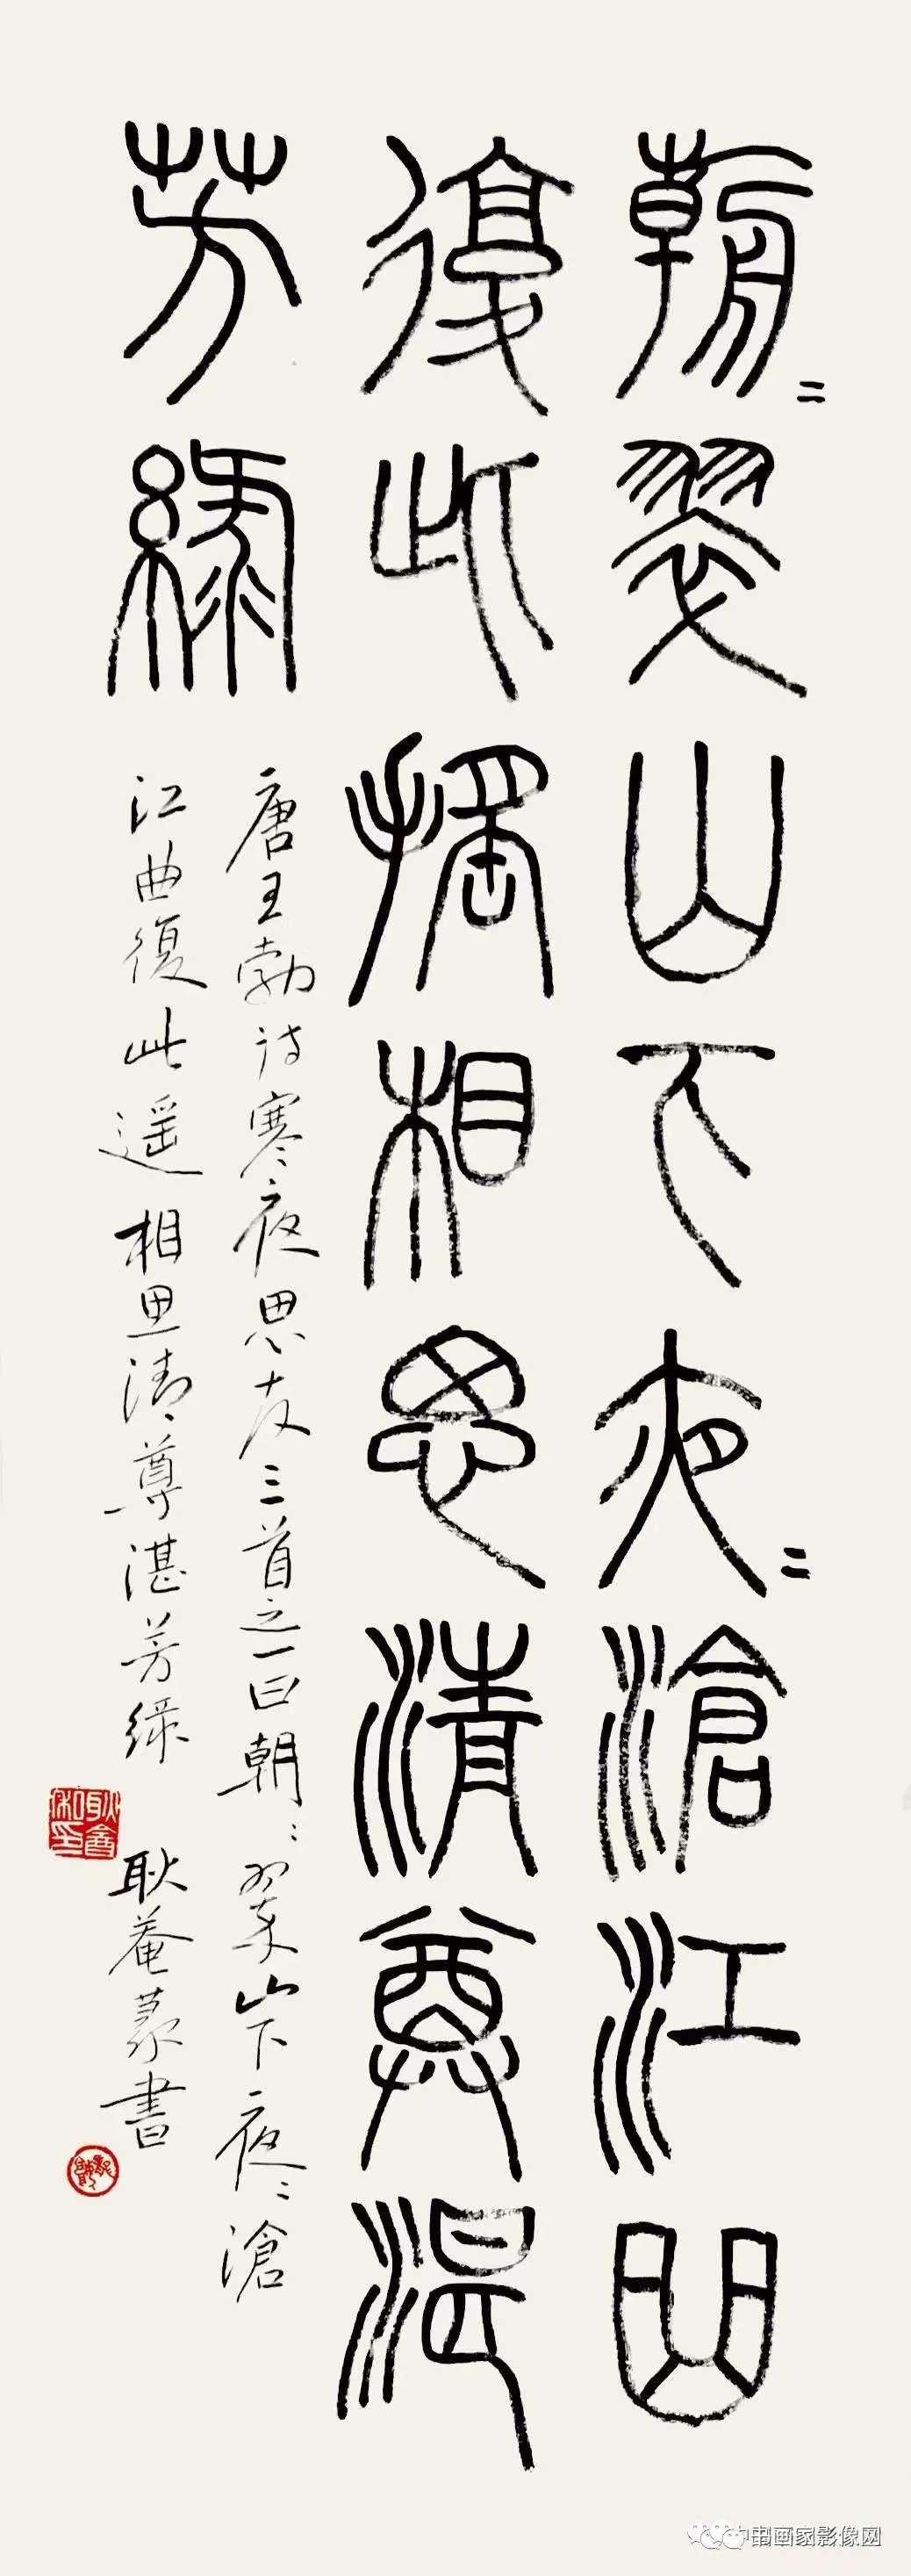 朝〻翠山下夜〻滄江曲
復此搖相思清尊湛
芳綠
唐王勃诗寒夜思友三首之一曰朝〻翠山下夜〻滄
江曲復此遥相思清尊湛芳綠
耿菴篆書
中国画家影像网